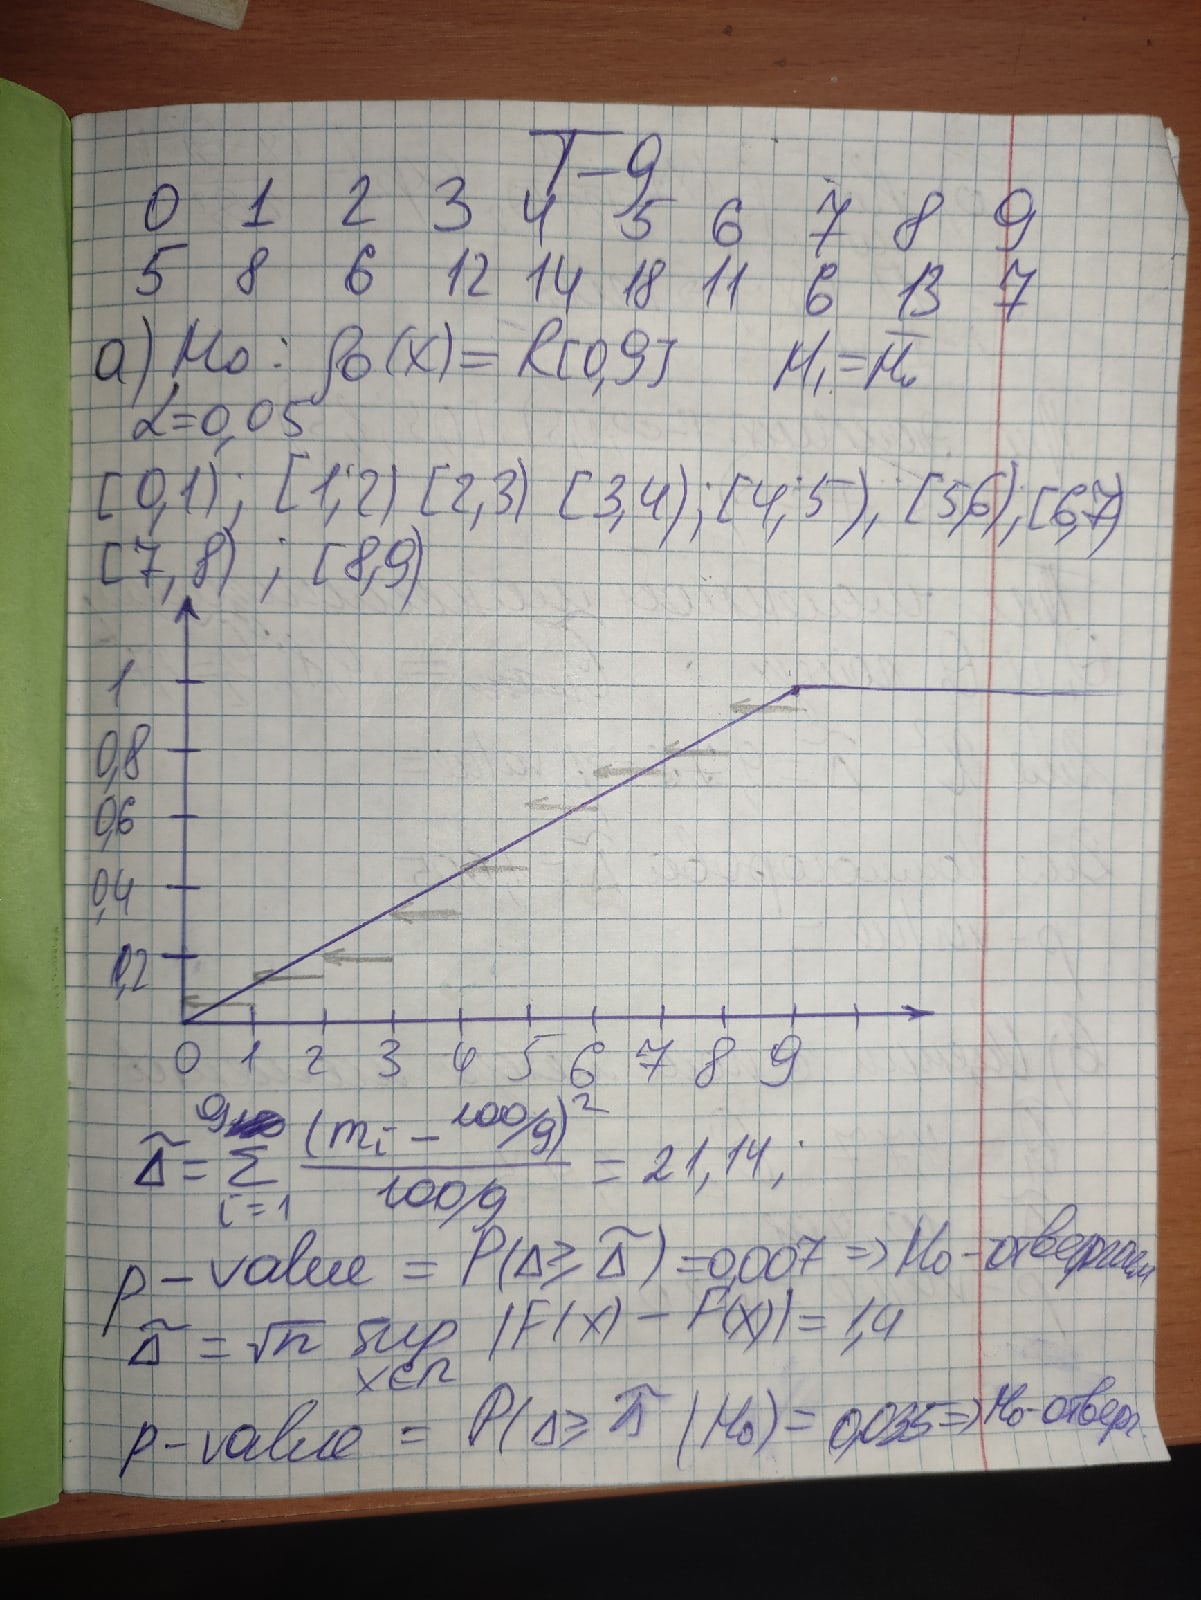 T-9
0 1 2 3 4 5 6 7 8 9
5 8 6 12 14 18 11 6 13 7
a) H₀: ρ₀(x) = R[0,9] H₁ = H̄₀
α=0,05
[0,1); [1,2) [2,3) [3,4); [4,5), [5,6); [6,7)
[7,8) ; [8,9)
1
0,8
0,6
0,4
0,2
0 1 2 3 4 5 6 7 8 9
Δ̃ = Σ_{i=1}^{9} (mᵢ - 100/9)² / (100/9) = 21,14;
p-value = P(Δ ≥ Δ̃) = 0,007 => H₀ - отвергаем
Δ̃ = √n sup_{x∈R} |F(x) - F̂(x)| = 1,4
p-value = P(Δ ≥ Δ̃ | H₀) = 0,035 => H₀ - отверг.